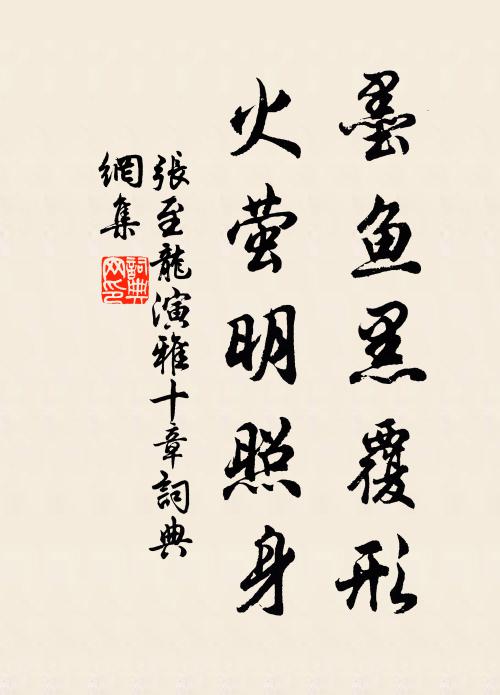 墨鱼黑覆形
火萤明照身
張至龍演雅十章詞典
網集
詞典
网印